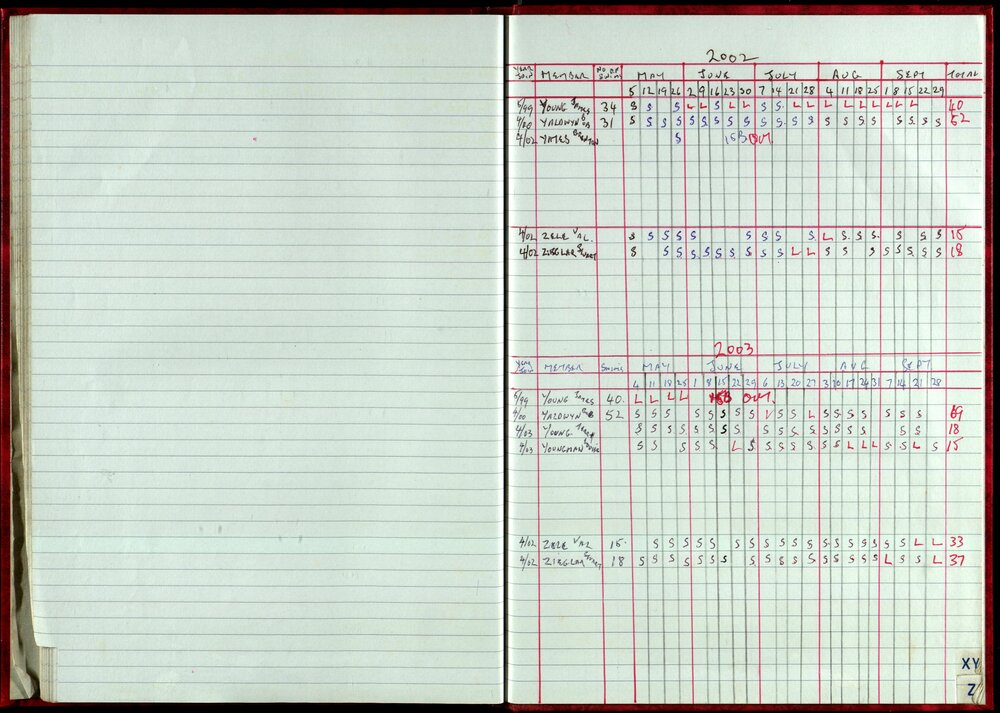 2002
YEAR JOIN MEMBER NO OF SWIMS MAY JUNE JULY AUG SEPT TOTAL
5 12 19 26 2 9 16 23 30 7 14 21 28 4 11 18 25 1 8 15 22 29
5/99 YOUNG JAMES 34 S S S L L S L L S S L L L L L L L L L 40
4/00 YALDWYN BOB 31 S S S S S S S S S S S S S S S S S S S S S 52
4/02 YATES S 15B OUT.
4/02 ZELE VAL. S S S S S S S S S L S S S S S S 15
4/02 ZIEGLAR STUART S S S S S S S S S S L L S S S S S S S S 18
2003
YEAR JOIN MEMBER SWIMS MAY JUNE JULY AUG SEPT
4 11 18 25 1 8 15 22 29 6 13 20 27 3 10 17 24 31 7 14 21 28
5/99 YOUNG JAMES 40. L L L L 15B OUT.
4/00 YALDWYN BOB 52 S S S S S S S S V S S L S S S S S S S 69
4/03 YOUNG S S S S S S S S S S S S S S S S S S 18
4/03 YOUNGMAN S S S S S L S S S S S S S L L L S S L S 15
4/02 ZELE VAL 15. S S S S S S S S S S S S S S S S S S L L 33
4/02 ZIEGLAR STUART 18 S S S S S S S S S S S S S S S S L S S L 37
XY
Z